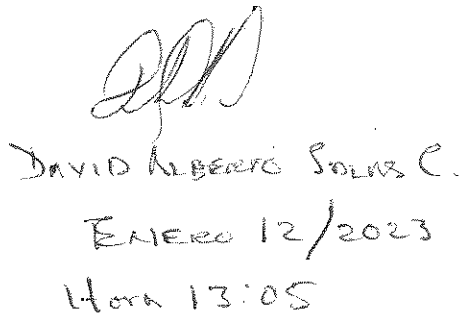 DAVID ALBERTO SALAS C.
ENERO 12/2023
Hora 13:05